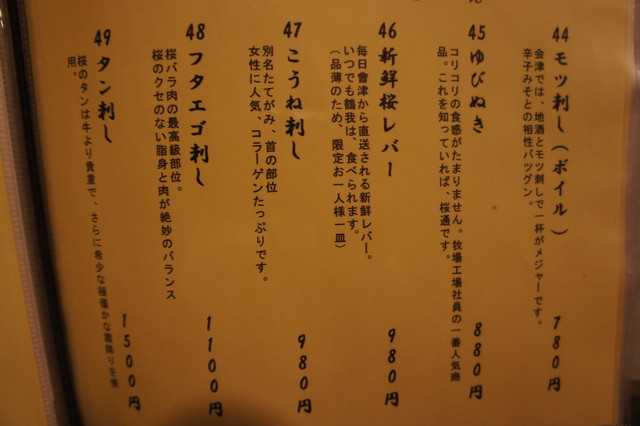 44 モツ刺し(ボイル)
会津では、地酒とモツ刺しで一杯がメジャーです。
辛子みそとの相性バツグン。
780円
45 ゆびぬき
コリコリの食感がたまりません。牧場工場社員の一番人気商
品。これを知っていれば、桜通です。
880円
46 新鮮桜レバー
毎日會津から直送される新鮮レバー。
いつでも鶴我は、食べられます。
(品薄のため、限定お一人様一皿)
980円
47 こうね刺し
別名たてがみ、首の部位
女性に人気、コラーゲンたっぷりです。
980円
48 フタエゴ刺し
桜バラ肉の最高級部位。
桜のクセのない脂身と肉が絶妙のバランス
1100円
49 タン刺し
桜のタンは牛より貴重で、さらに希少な極僅かな霜降りを使
用。
1500円